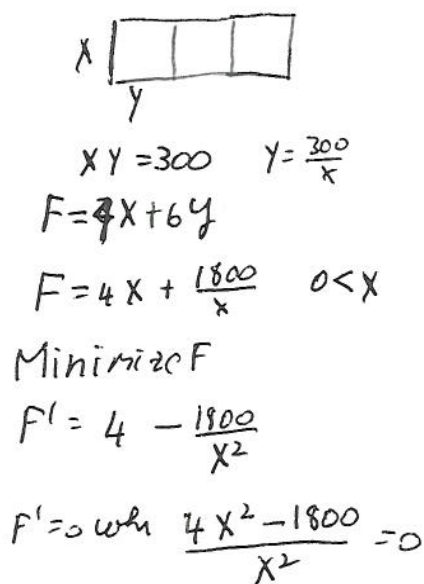 X
Y
XY = 300 Y = 300/x
F = 4X + 6y
F = 4X + 1800/x 0 < x
Minimize F
F' = 4 - 1800/X²
F' = 0 whn (4X² - 1800)/X² = 0